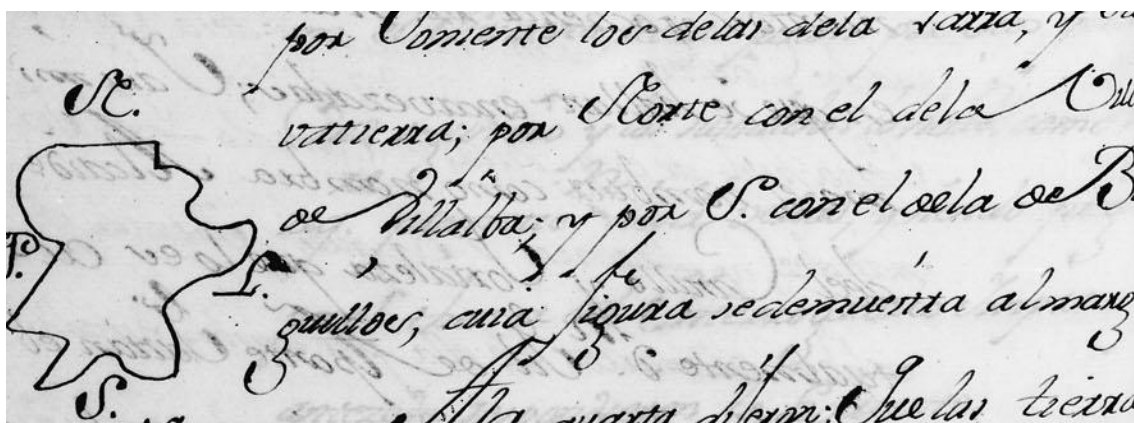 por Poniente los de las de la Parra, y
N.
vatierra; por Norte con el dela
de Villalba; y por S. con el dela de B
P.
L.
guillos, cuia figura sedemuestra al marg
S.
A la quarta dixeron: Que las tierra